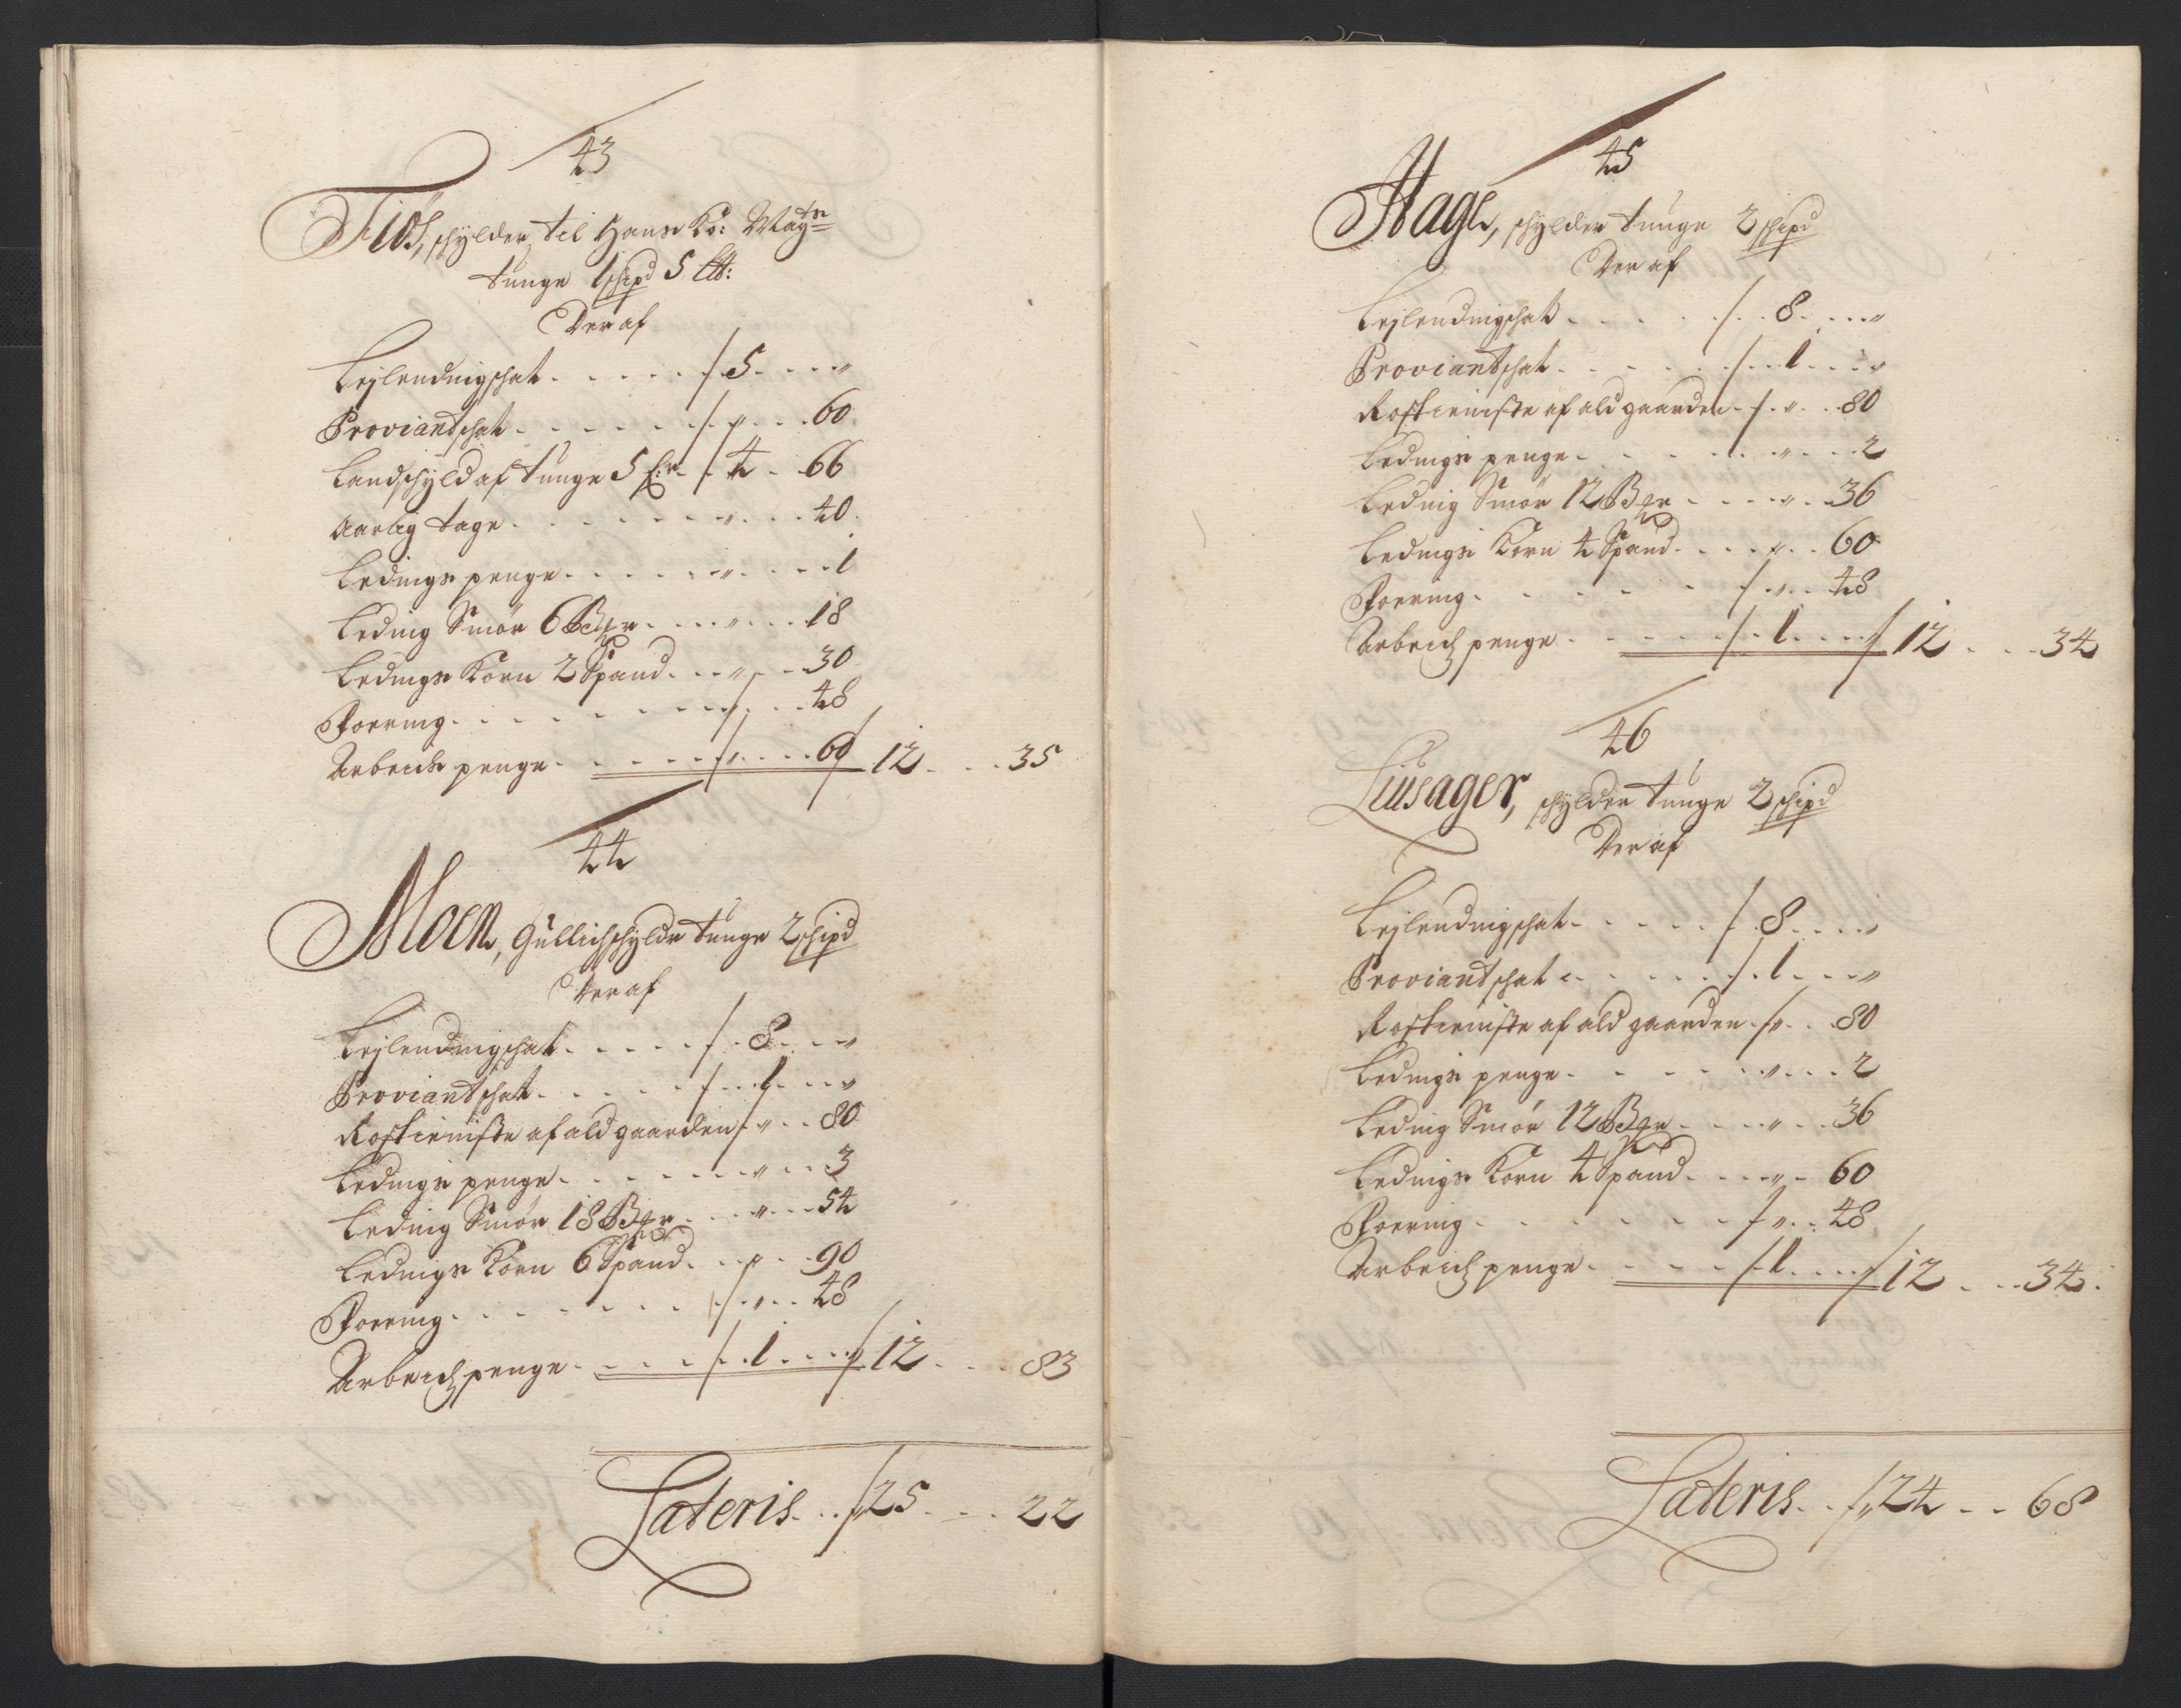 43
Fiös, schylder til Hans Ko: Maÿtz
tunge 1 schpd 5 lb:
Der af
Leylendingschat . . . . . / 5 . . . "
Proviantschat . . . . . . / " . . . 60
Landschyld af tunge 5 . . / 4 . . 66
Aarlig tage . . . . . . . " . . . 40
Ledings penge . . . . . " . . . . 1
Leding Smör 6 Bpr . . . . " . . . 18
Ledings Korn 2 Spand . . . " . . 30
Foering . . . . . . . . / " . . . 48
Arbeids penge . . . . . / " . . . 60 / 12 . . . 35
44
Moen, Gullich schylder tunge 2 schpd
Der af
Leylendingschat . . . . . / . 8 . . . "
Proviantschat . . . . . / . . 1 . . . "
Rostieniste af ald gaarden / " . . 80
Ledings penge . . . . . . . " . . . 3
Leding Smör 18 Bpr . . . " . . . 54
Ledings Korn 6 Spand . . . " . . 90
Foering . . . . . . . . / . " . . 48
Arbeids penge . . . . . / . 1 . . . " / 12 . . . 83
Lateris . . / 25 . . . 22
45
Hage, schylder tunge 2 schpd
Der af
Leylendingschat . . . . . / . . 8 . . . . "
Proviantschat . . . . . . / . . 1 . . . "
Rostieniste af ald gaarden . / . " . . 80
Ledings penge . . . . . . . " . . . 2
Leding Smör 12 Bpr . . . . " . . 36
Ledings Korn 4 Spand . . . . " . . 60
Foering . . . . . . / . " . . 48
Arbeids penge . . . . . / . 1 . . . . " / 12 . . . 34
46
Liusager, schylder tunge 2 schpd
Der af
Leylendingschat . . . . . / . 8 . . . . "
Proviantschat . . . . . . / . 1 . . . "
Rostieniste af ald gaarden . / " . . 80
Ledings penge . . . . . . " . . . 2
Leding Smör 12 Bpr . . . . " . . 36
Ledings Korn 4 Spand . . . . " . 60
Foering . . . . . . . / " . . 48
Arbeids penge . . . . . / . 1 . . . . " / 12 . . . 34 .
Lateris . . / 24 . . 68